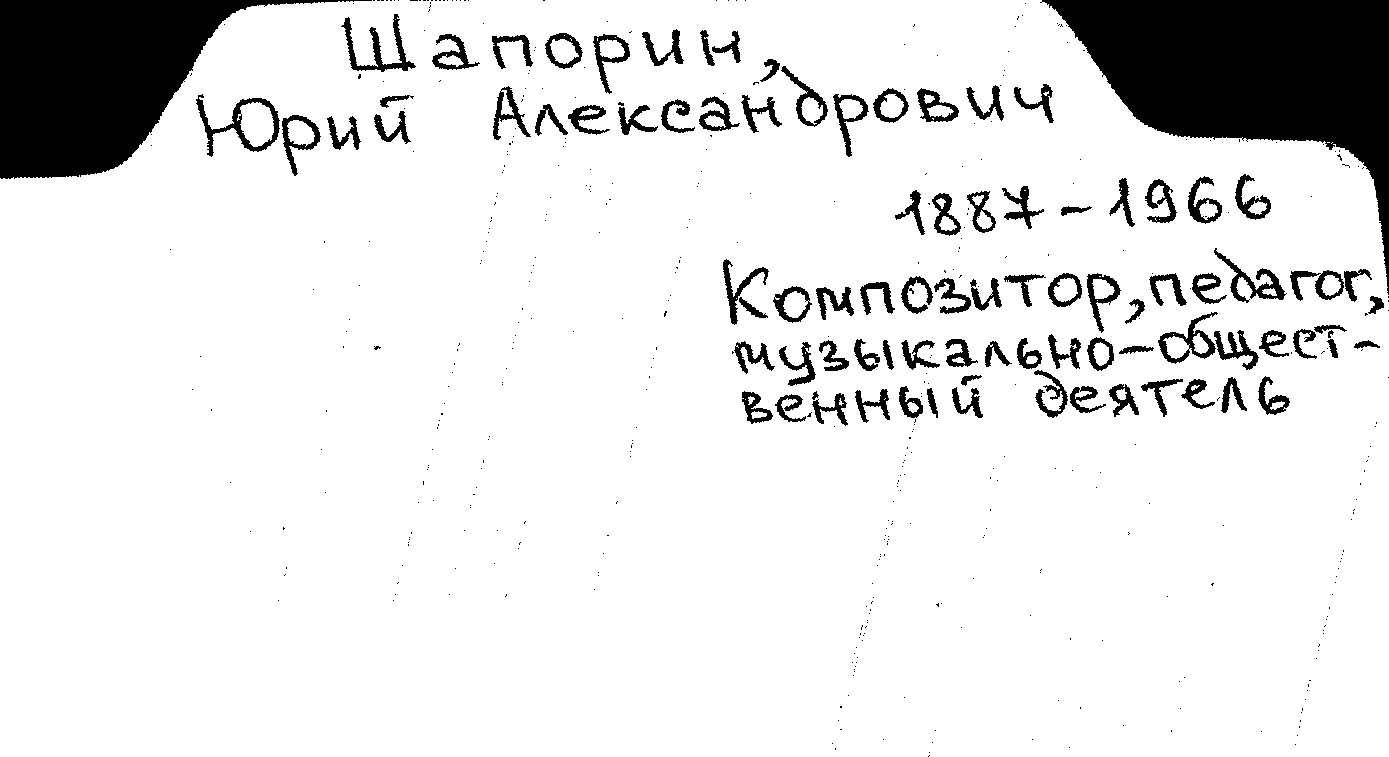 Шапорин,
Юрий Александрович
1887-1966
Композитор, педагог,
музыкально-общест-
венный деятель